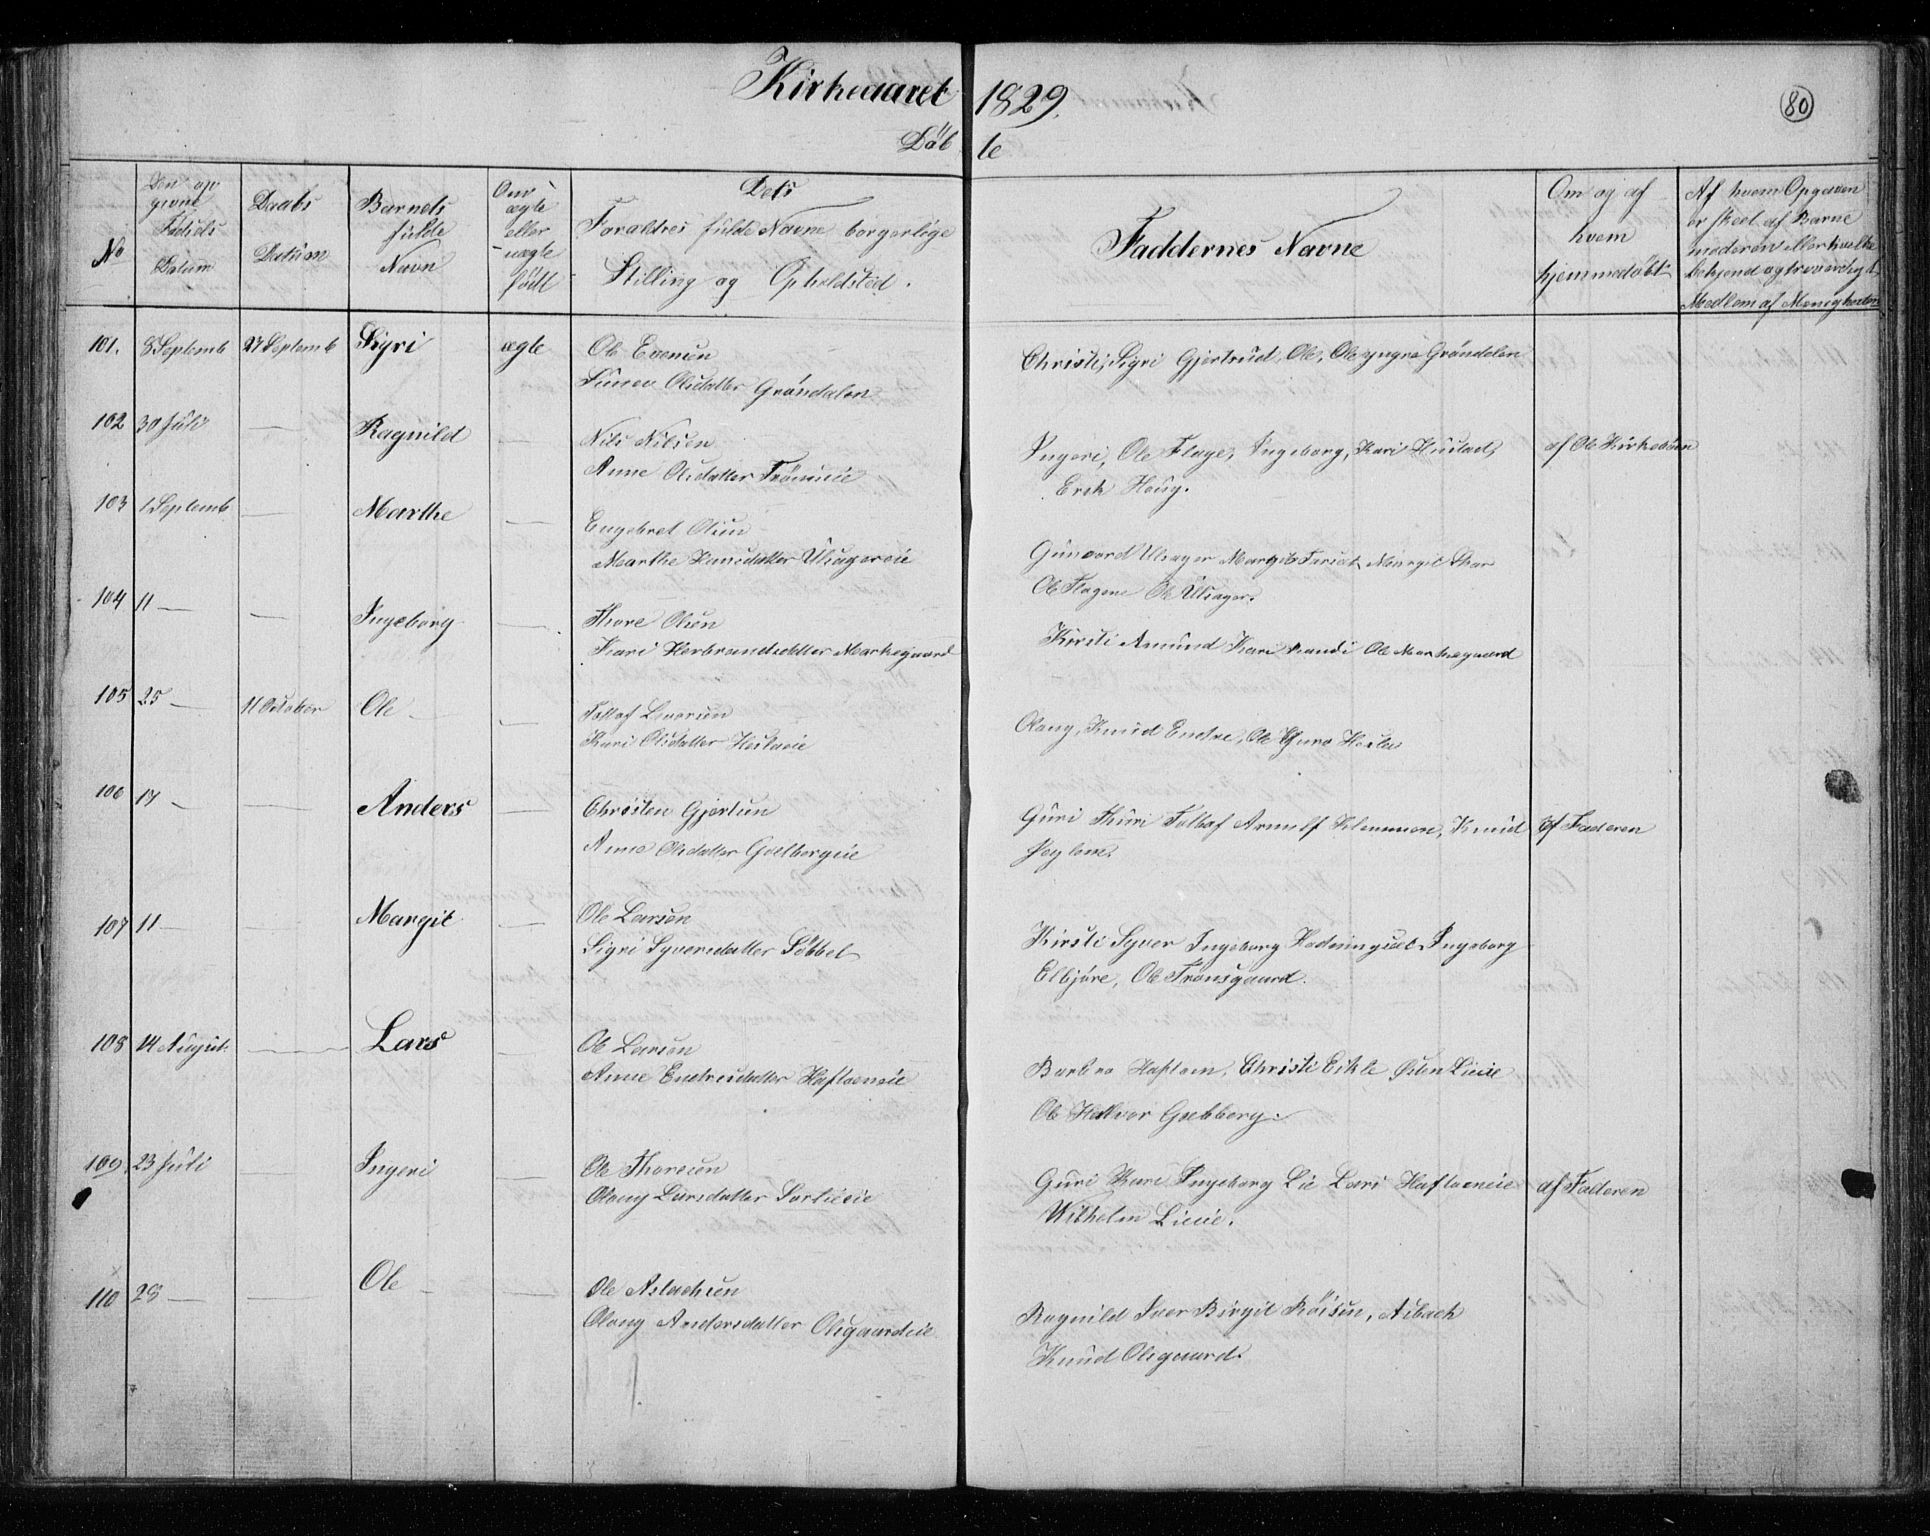 Kirkeaaret 1829.
80
Døbte
No
Den op
givne
Fødsels
Datum
Daabs
Datum
Barnets
fulde
Navn
Om
ægte
eller
uægte
født
Dets
Foraldres fulde Navne borgerlige
Stilling og Opholdsted.
Faddernes Navne
Om og af
hvem
hjemmedøbt
Af hvem Opgaven
er skeet af Barne
moderen eller hvilke
bekjend og troværdigt
Medlem af Menigheden
101. 8 Septemb 27 Septemb Sigri ægte Ole Evensen
Olsdatter Grøndalen
Christi, Sigri Gjertrud, Ole, Ole yngre Grøndelen
102 30 Juli — Ragnild — Nils Nilsen
Anne Olsdatter
Ingeri, Ole Flage, Ingeborg, Kari Hustad,
Erik Houg.
af Ole Kirkebøen
103 1 Septemb — Marthe — Engebret Olsen
Marthe Hansdatter Ulsagereie
Gunvord Ulsager Margit Margit
Ole Flagene Ole Ulsager.
104 11 — — Ingeborg — Thore Olsen
Kari Herbrandsdatter Markegaard
Kirsti Amund Kari Randi Ole Markegaard
105 25 — 11 October Ole — — Tollef
Kari Olsdatter
Olaug, Knud Endre, Ole Guro
106 17 — — Anders — Christen Gjertsen
Anne Olsdatter Golbergeie
Guri Thuri Tollef Arnulf Klemmen, Knud
af Faderen
107 11 — — Margit — Ole Larsen
Sigri Syversdatter Søbbel
Kirsti Syver Ingeborg Ingeborg
Elbjøre, Ole Transgaard.
108 14 August. — Lars — Ole Larsen
Anne Endresdatter Haftoeneie
Barbro Haftoen, Christi Eikle Østen Lieeie
Ole Halvor Golberg.
109. 23 Juli — Ingeri — Ole Thoresen
Olaug Larsdatter Sørlieeie
Guri Kari Ingeborg Lie Lars Haftoeneie
Wilhelm Lieeie.
af Faderen
110 28 — — Ole — — Ole Aslachsen
Olaug Andersdatter Olsgaardeie
Ragnild Iver Birgit Røisen, Asbach
Knud Olsgaard.